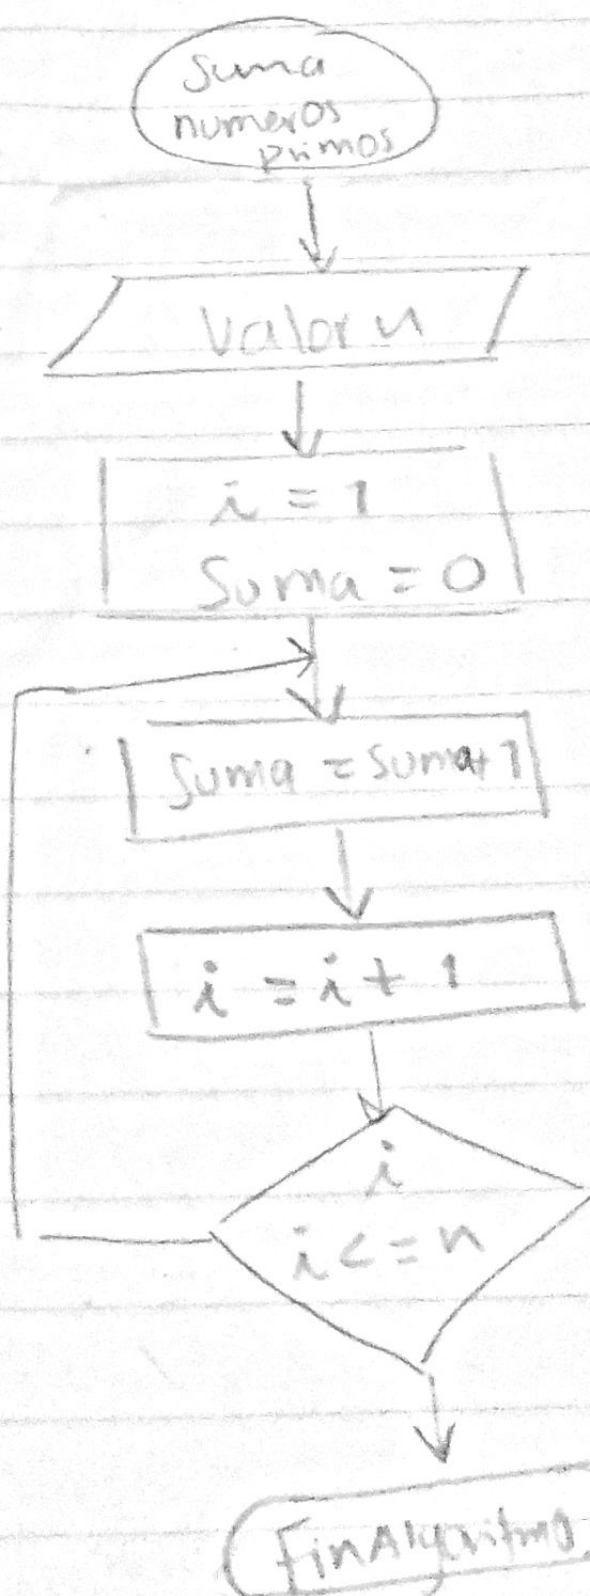 Suma
numeros
primos
Valor n
i = 1
Suma = 0
Suma = Suma+1
i = i + 1
i
i <= n
FinAlgoritmo